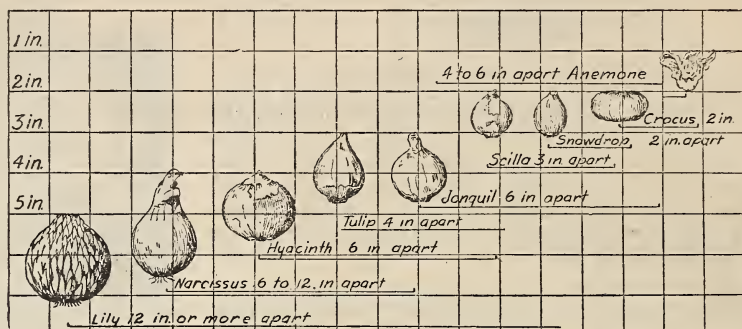 1 in.
2 in.
3 in.
4 in.
5 in.
4 to 6 in apart Anemone
Crocus, 2 in.
Snowdrop 2 in. apart
Scilla 3 in apart
Jonquil 6 in apart
Tulip 4 in apart
Hyacinth 6 in apart
Narcissus 6 to 12. in apart
Lily 12 in. or more apart